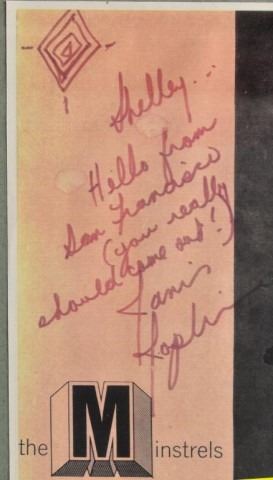 Shelley...
Hello from
San Francisco
(you really
should come out!)
Janis
Joplin
the M instrels